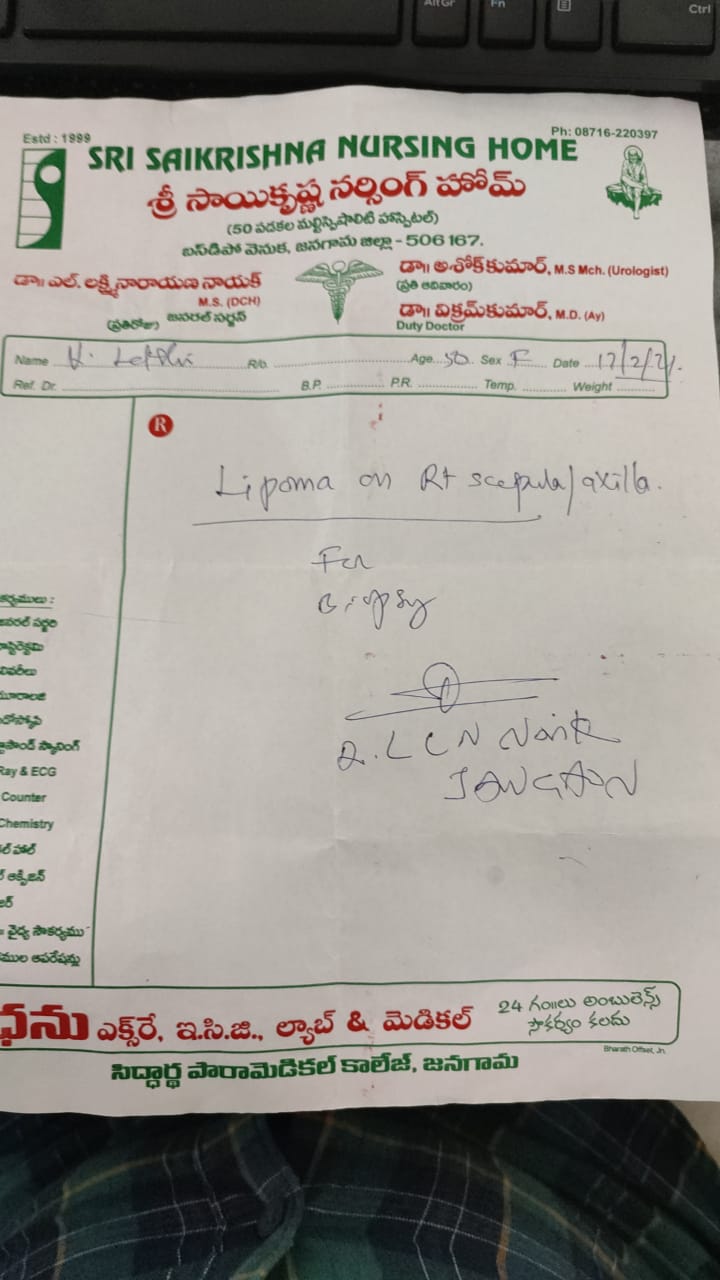 AltGr
Fn
Ctrl
Estd : 1999
Ph: 08716-220397
SRI SAIKRISHNA NURSING HOME
శ్రీ సాయికృష్ణ నర్సింగ్ హోమ్
(50 పడకల మల్టిస్పెషాలిటి హాస్పిటల్)
బస్‌డిపో వెనుక, జనగామ జిల్లా - 506 167.
డా॥ ఎల్. లక్ష్మినారాయణ నాయక్
M.S. (DCH)
(ప్రతిరోజు) జనరల్ సర్జన్
డా॥ అశోక్‌కుమార్, M.S Mch. (Urologist)
(ప్రతి ఆదివారం)
డా॥ విక్రమ్‌కుమార్, M.D. (Ay)
Duty Doctor
Name K. R/o. Age 50 Sex F Date 17/2/
Ref. Dr. B.P. P.R. Temp. Weight
R
Lipoma on Rt scepula/axilla.
For
Biopsy
L C N Naik
JANGAON
Ray & ECG
Counter
Chemistry
వైద్య సౌకర్యము
ముల ఆపరేషన్లు
ఎక్స్‌రే, ఇ.సి.జి., ల్యాబ్ & మెడికల్
24 గం॥లు అంబులెన్స్
సౌకర్యం కలదు
Bharath Offset, Jn.
సిద్ధార్థ పారామెడికల్ కాలేజ్, జనగామ